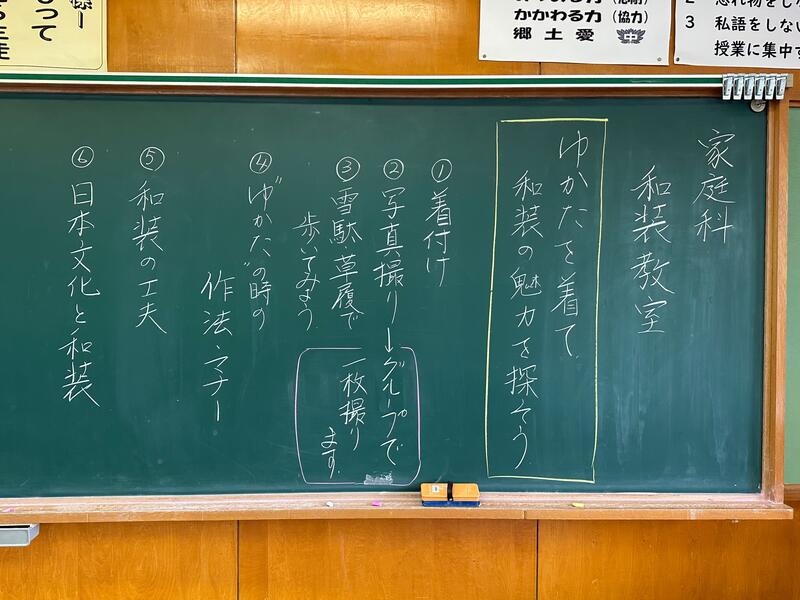 家庭科
和装教室
ゆかたを着て
和装の魅力を探そう
①着付け
②写真撮り→グループで
一枚撮り
ます。
③雪駄草履で
歩いてみよう
④"ゆかた"の時の
作法・マナー
⑤和装の工夫
⑥日本文化と和装
かかわる力(協力)
郷土愛
2
3 私語をしない
授業に集中す
って